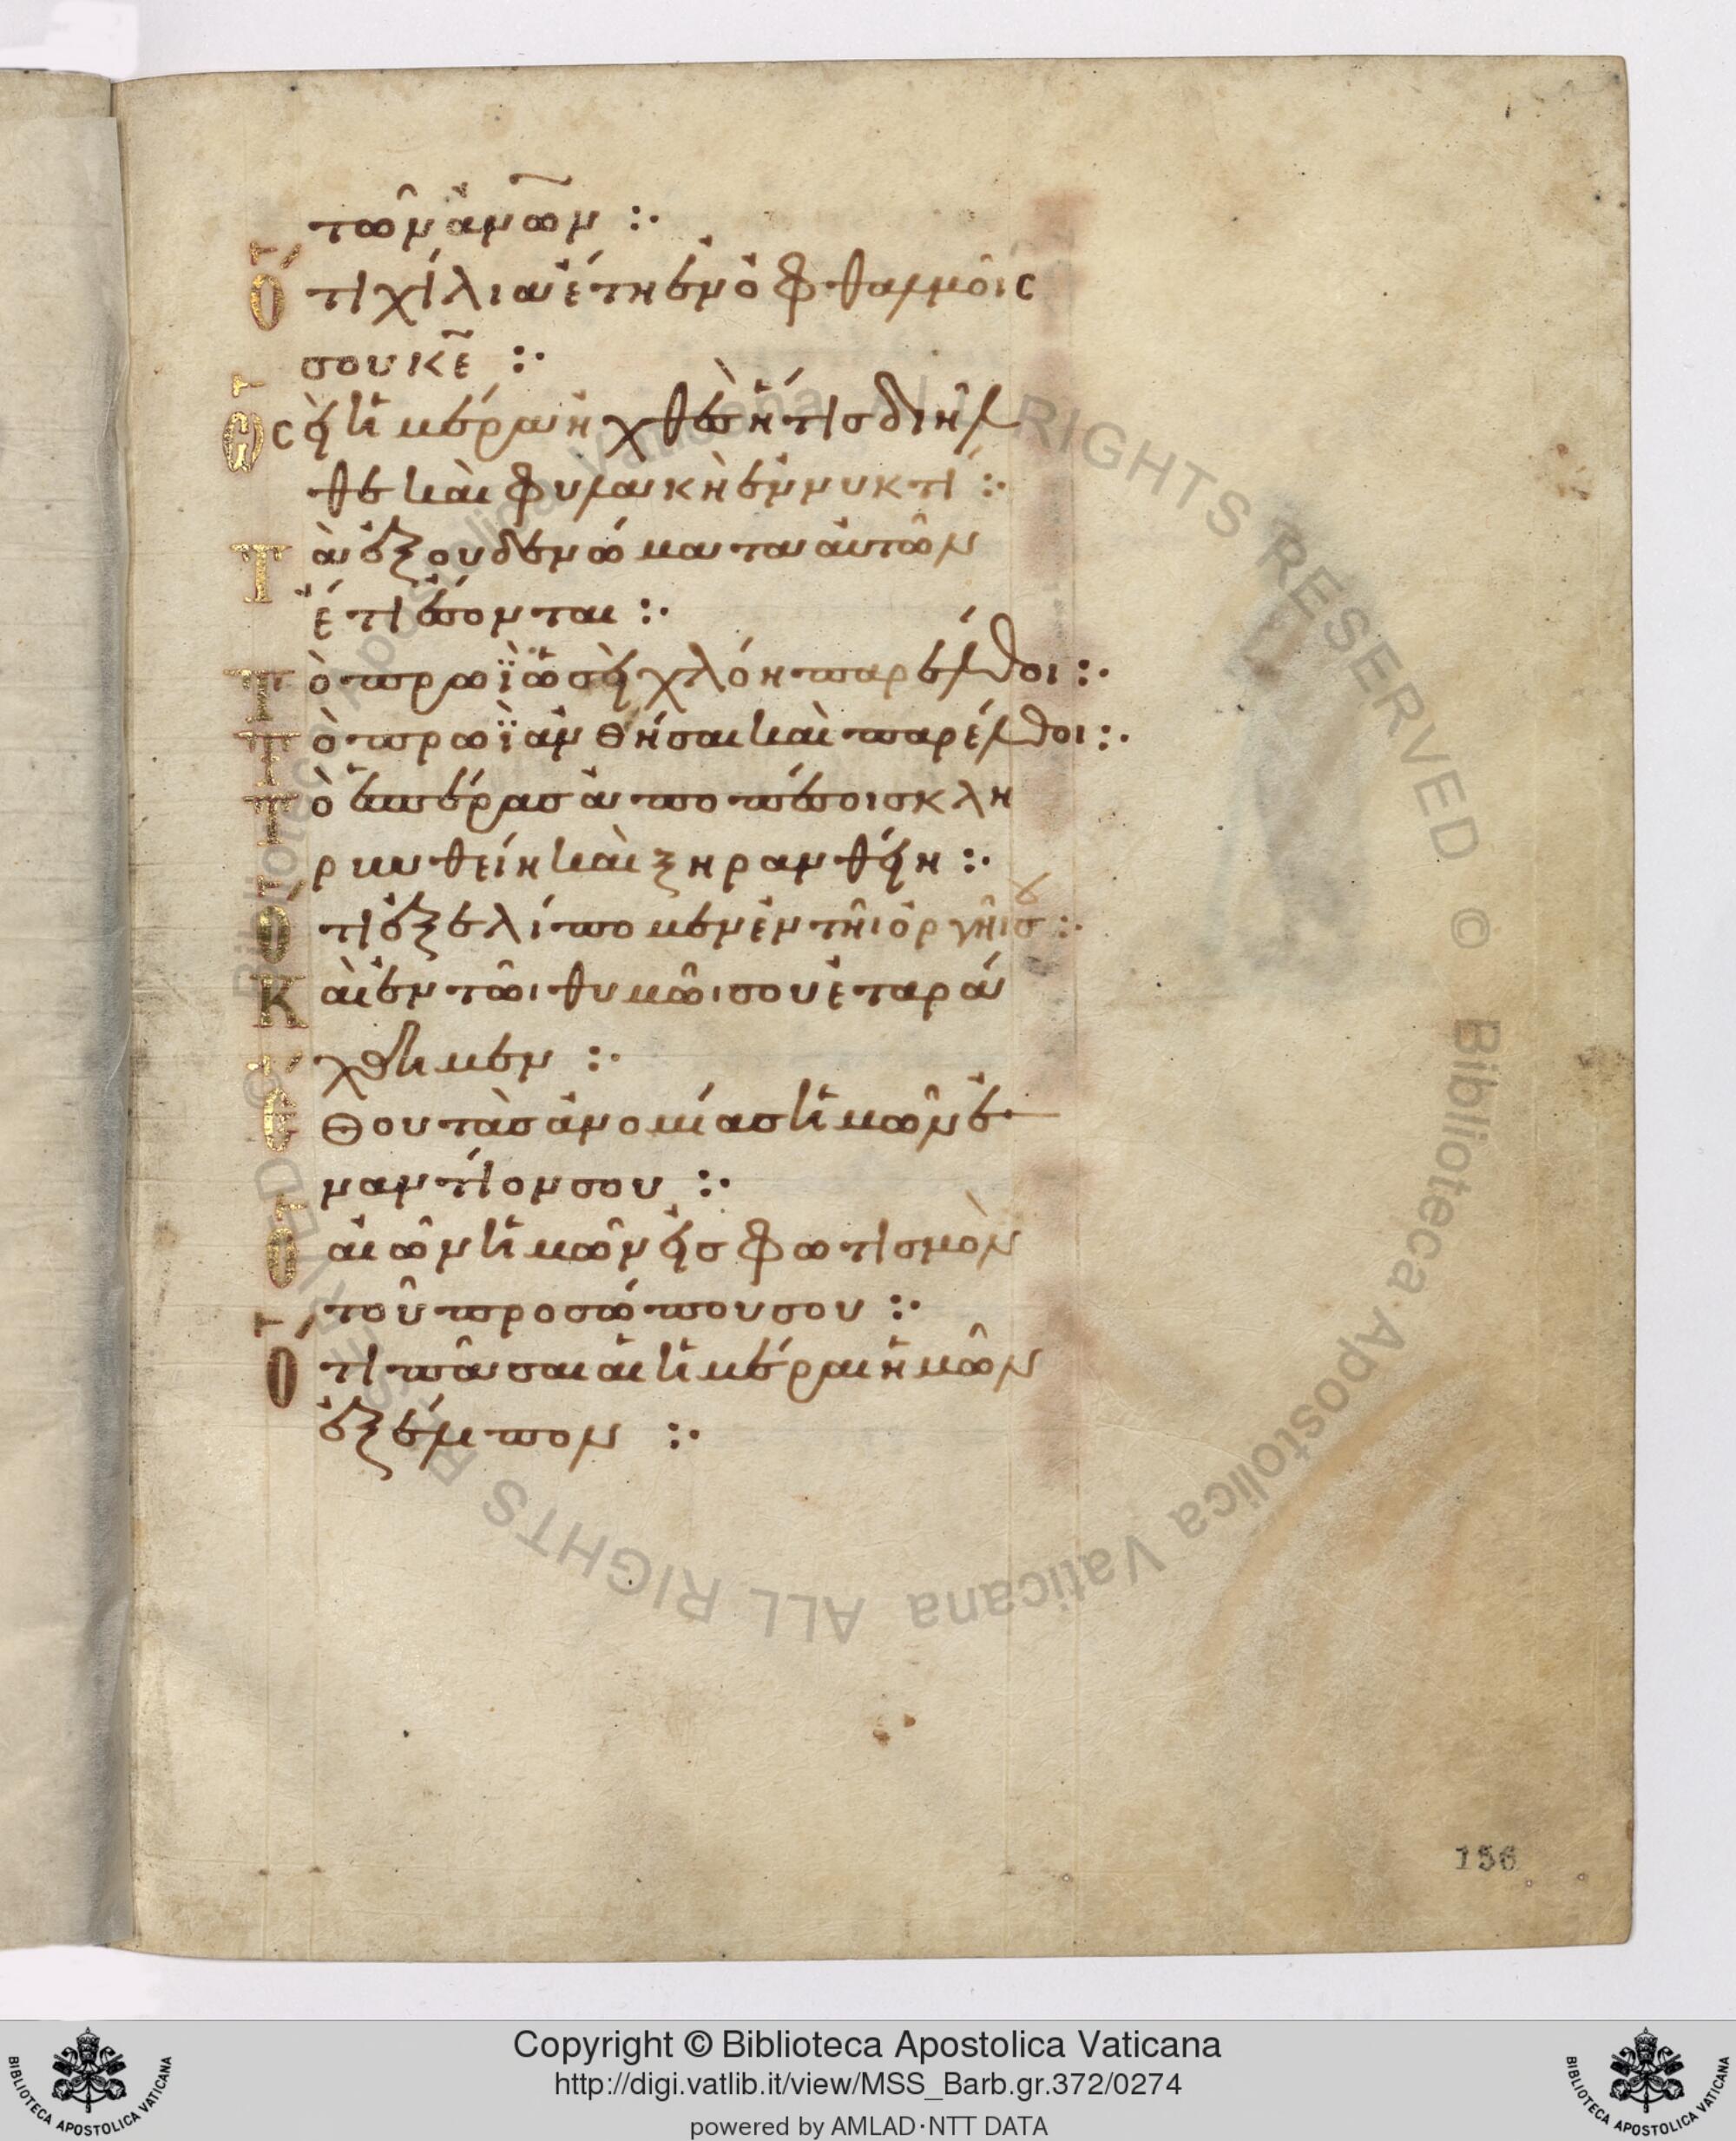 τῶν ἀν̅ω̅ν :·
Ὅτι χίλια ἔτη ἐν ὀφθαλμοῖς
σου κ̅ε̅ :·
ὡς εἰ ἡμέρα ἡ χθὲς ἥτις διῆλ
θε καὶ φυλακὴ ἐν νυκτί :·
Τὰ ἐξουδενώματα αὐτῶν
ἔτη ἔσονται :·
Τὸ πρωῒ ὡσεὶ χλόη παρέλθοι :·
Τὸ πρωῒ ἀνθήσαι καὶ παρέλθοι :·
Τὸ ἑσπέρας ἀποπέσοι σκλη
ρυνθείη καὶ ξηρανθείη :·
Ὅτι ἐξελίπομεν ἐν τῆι ὀργῆι σου :·
Καὶ ἐν τῶι θυμῶι σου ἐταρά
χθημεν :·
Ἔθου τὰς ἀνομίας ἡμῶν ἐ
ναντίον σου :·
Ὁ αἰὼν ἡμῶν εἰς φωτισμὸν
τοῦ προσώπου σου :·
Ὅτι πᾶσαι αἱ ἡμέραι ἡμῶν
ἐξέλιπον :·
156
Copyright © Biblioteca Apostolica Vaticana
http://digi.vatlib.it/view/MSS_Barb.gr.372/0274
powered by AMLAD·NTT DATA
BIBLIOTECA APOSTOLICA VATICANA
BIBLIOTECA APOSTOLICA VATICANA
© Biblioteca Apostolica Vaticana ALL RIGHTS RESERVED © Biblioteca Apostolica Vaticana ALL RIGHTS RESERVED